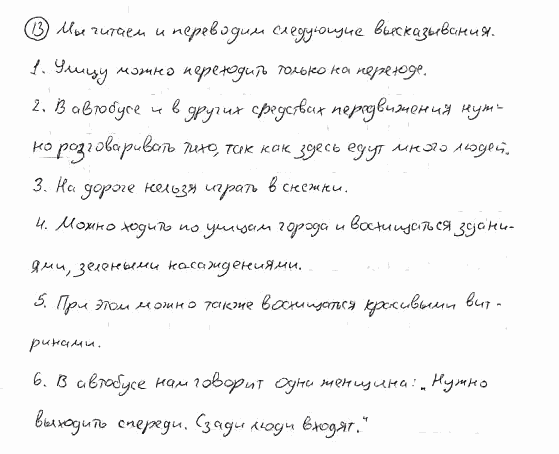 13 Мы читаем и переводим следующие высказывания.
1. Улицу можно переходить только на переходе.
2. В автобусе и в других средствах передвижения нуж-
но разговаривать тихо, так как здесь едут много людей.
3. На дороге нельзя играть в снежки.
4. Можно ходить по улицам города и восхищаться здани-
ями, зелеными насаждениями.
5. При этом можно также восхищаться красивыми вит-
ринами.
6. В автобусе нам говорит одна женщина: „Нужно
выходить спереди. Сзади люди входят.“